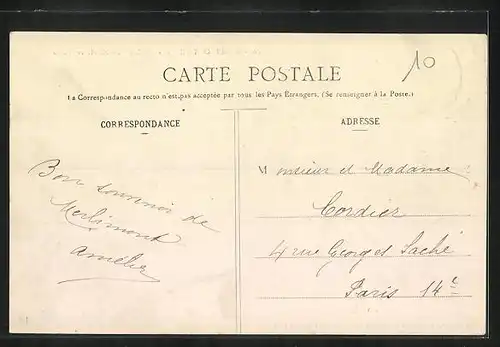 10
CARTE POSTALE
La Correspondance au recto n'est pas acceptée par tous les Pays Étrangers. (Se renseigner à la Poste.)
CORRESPONDANCE
ADRESSE
Bon souvenir de
Merlimont
Amélie
Monsieur et Madame
Cordier
4 rue Georges Saché
Paris 14e